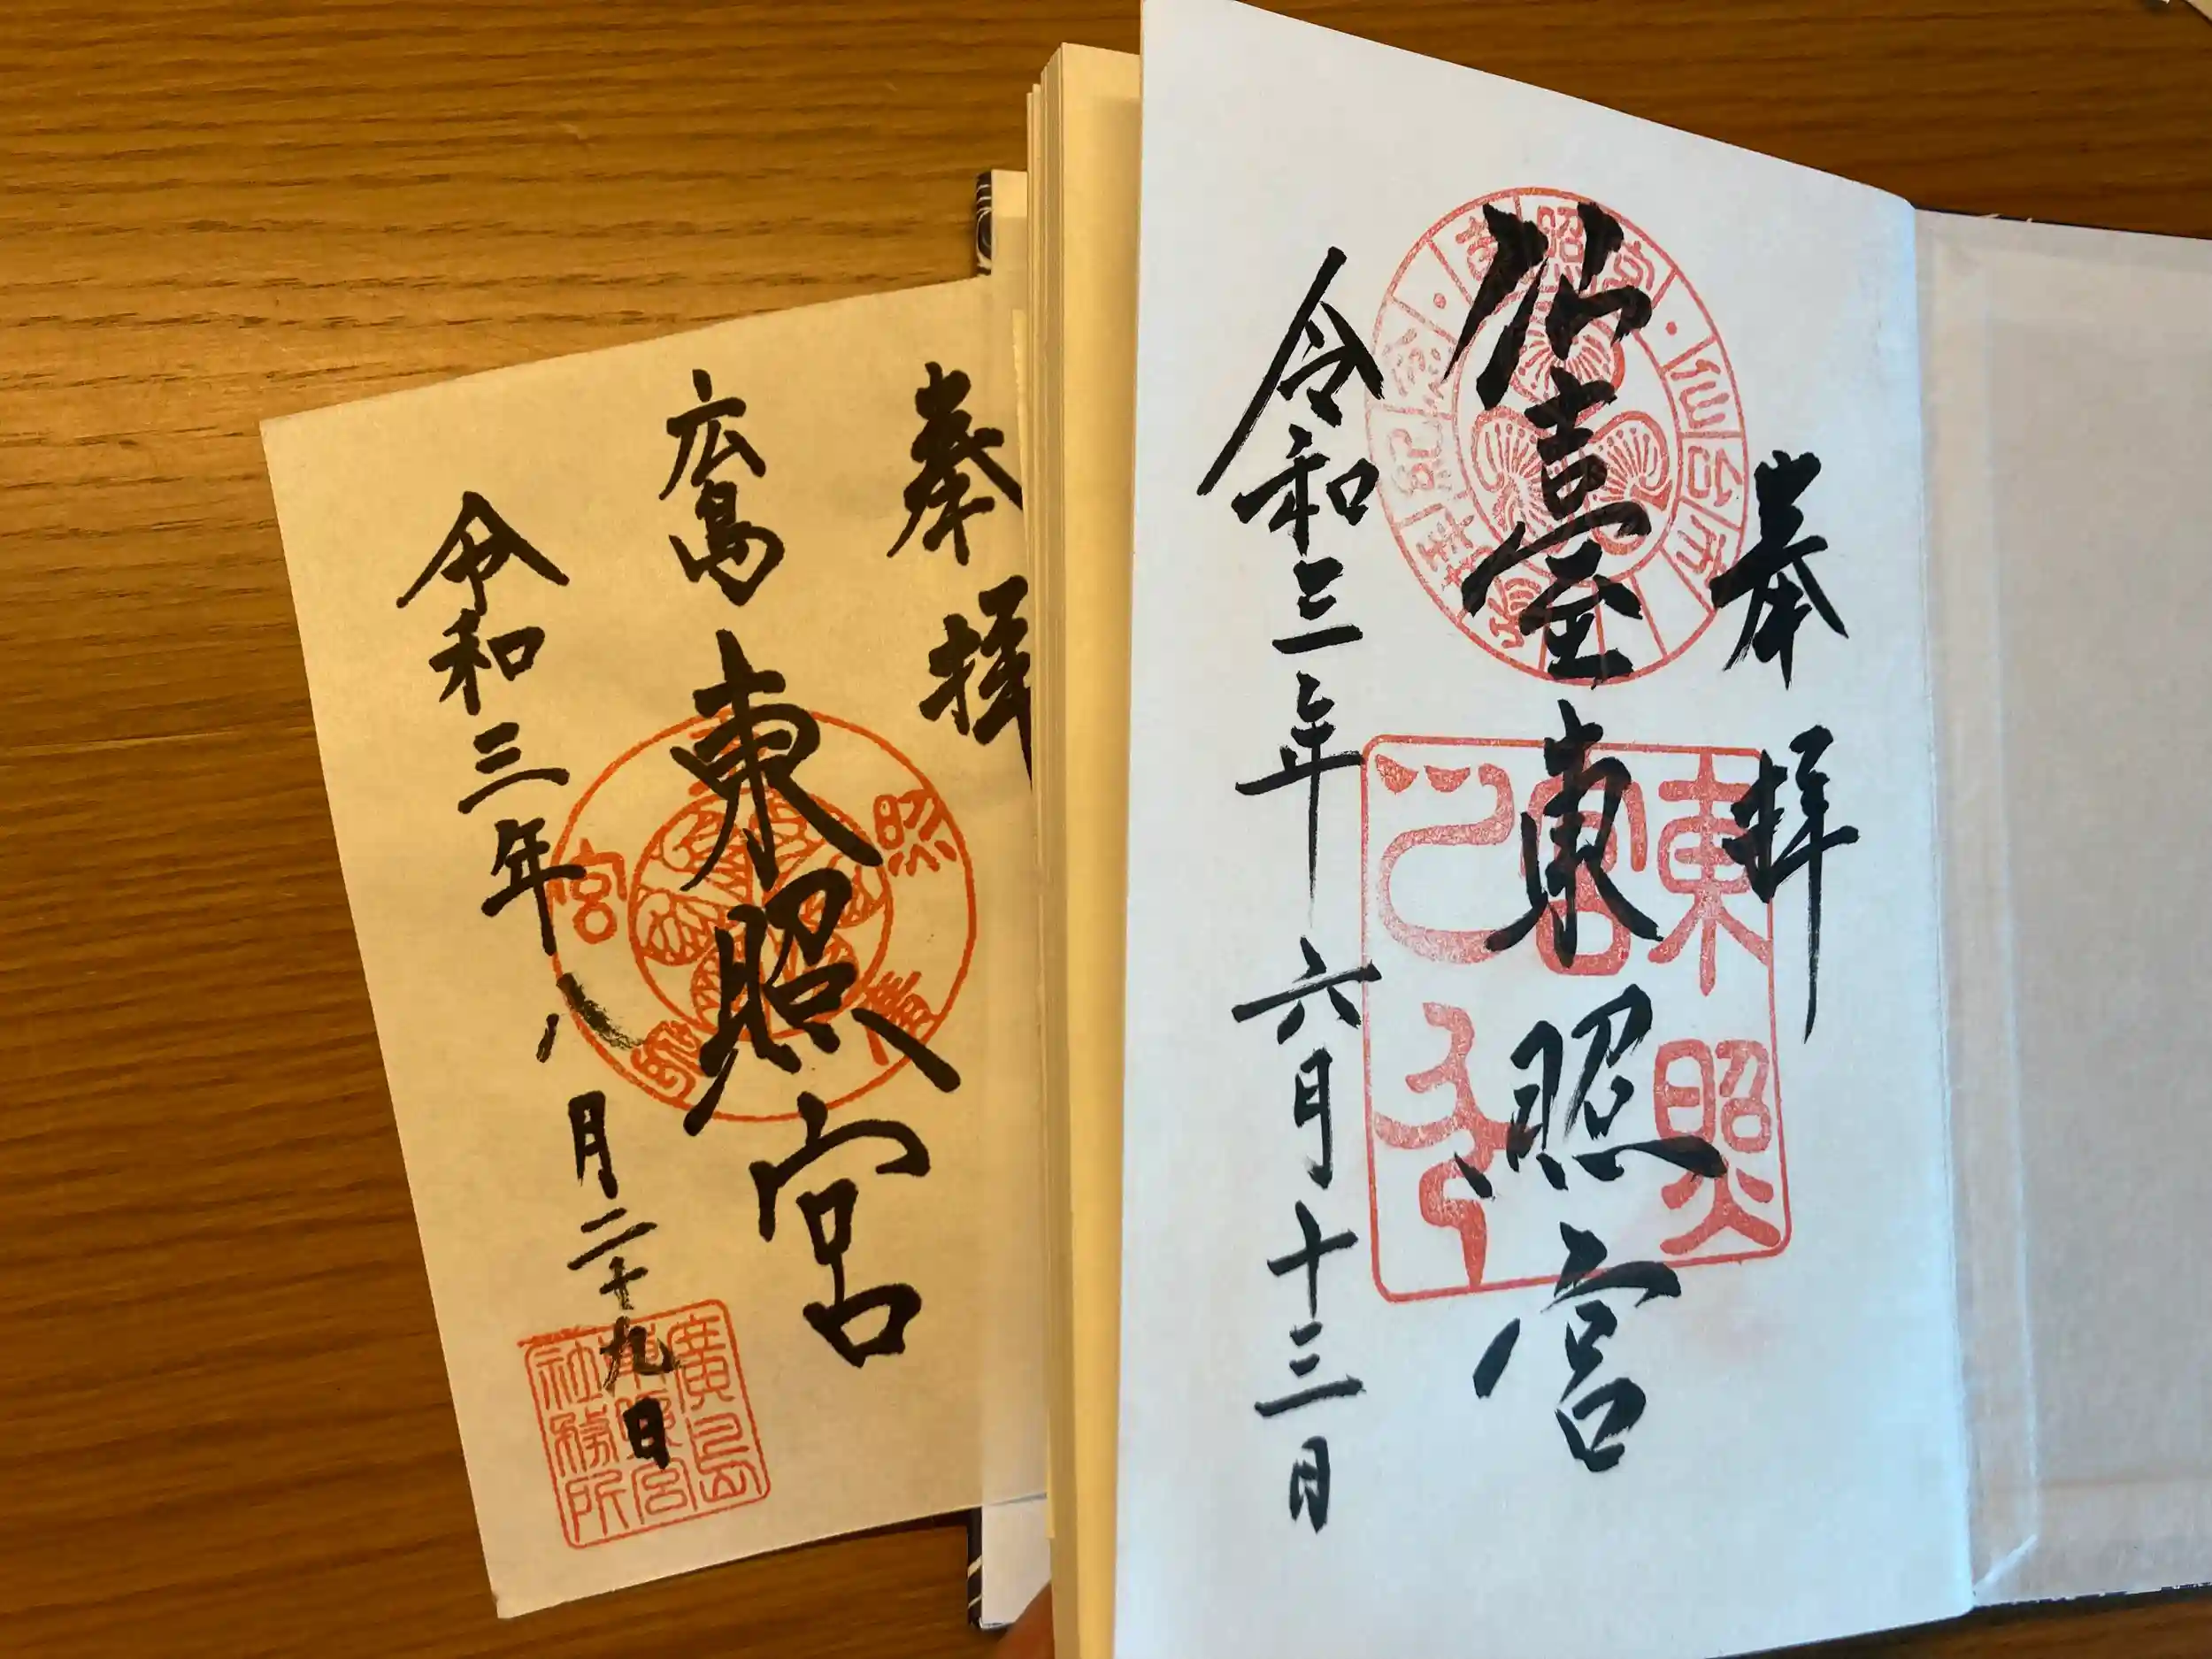 奉拝
仙臺東照宮
令和三年六月十三日
東照宮
東照宮
仙台市
奉拝
広島東照宮
令和三年八月二十九日
照
宮
廣島
東照宮
社務所